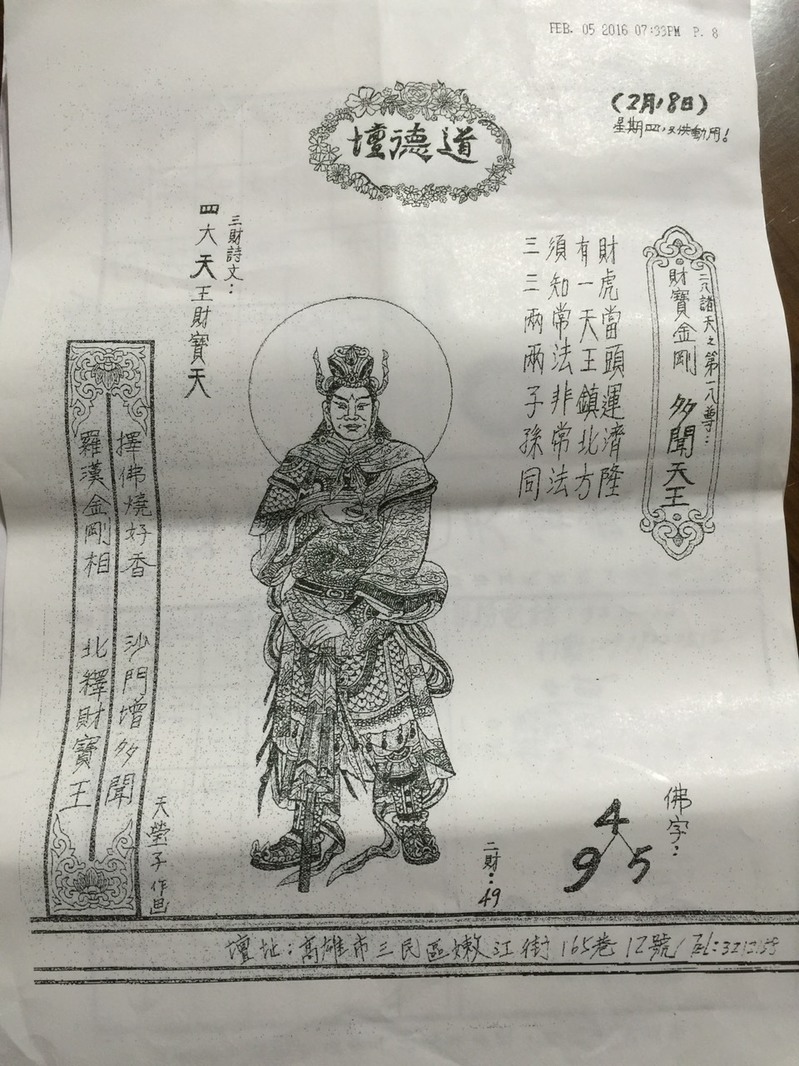 FEB. 05 2016 07:33PM P. 8
(2月18日)
星期四,又供動用!
道德壇
二八諸天之第一八尊:
財寶金剛 多聞天王
財虎當頭運濟隆
有一天王鎮北方
須知常法非常法
三三兩兩子孫同
三財詩文:
四大天王財寶天
擇佛燒好香 沙門增多聞
羅漢金剛相 北釋財寶王
天瑩子作画
二財:49
佛字:
4
9 5
壇址:高雄市三民區嫩江街165巷12號